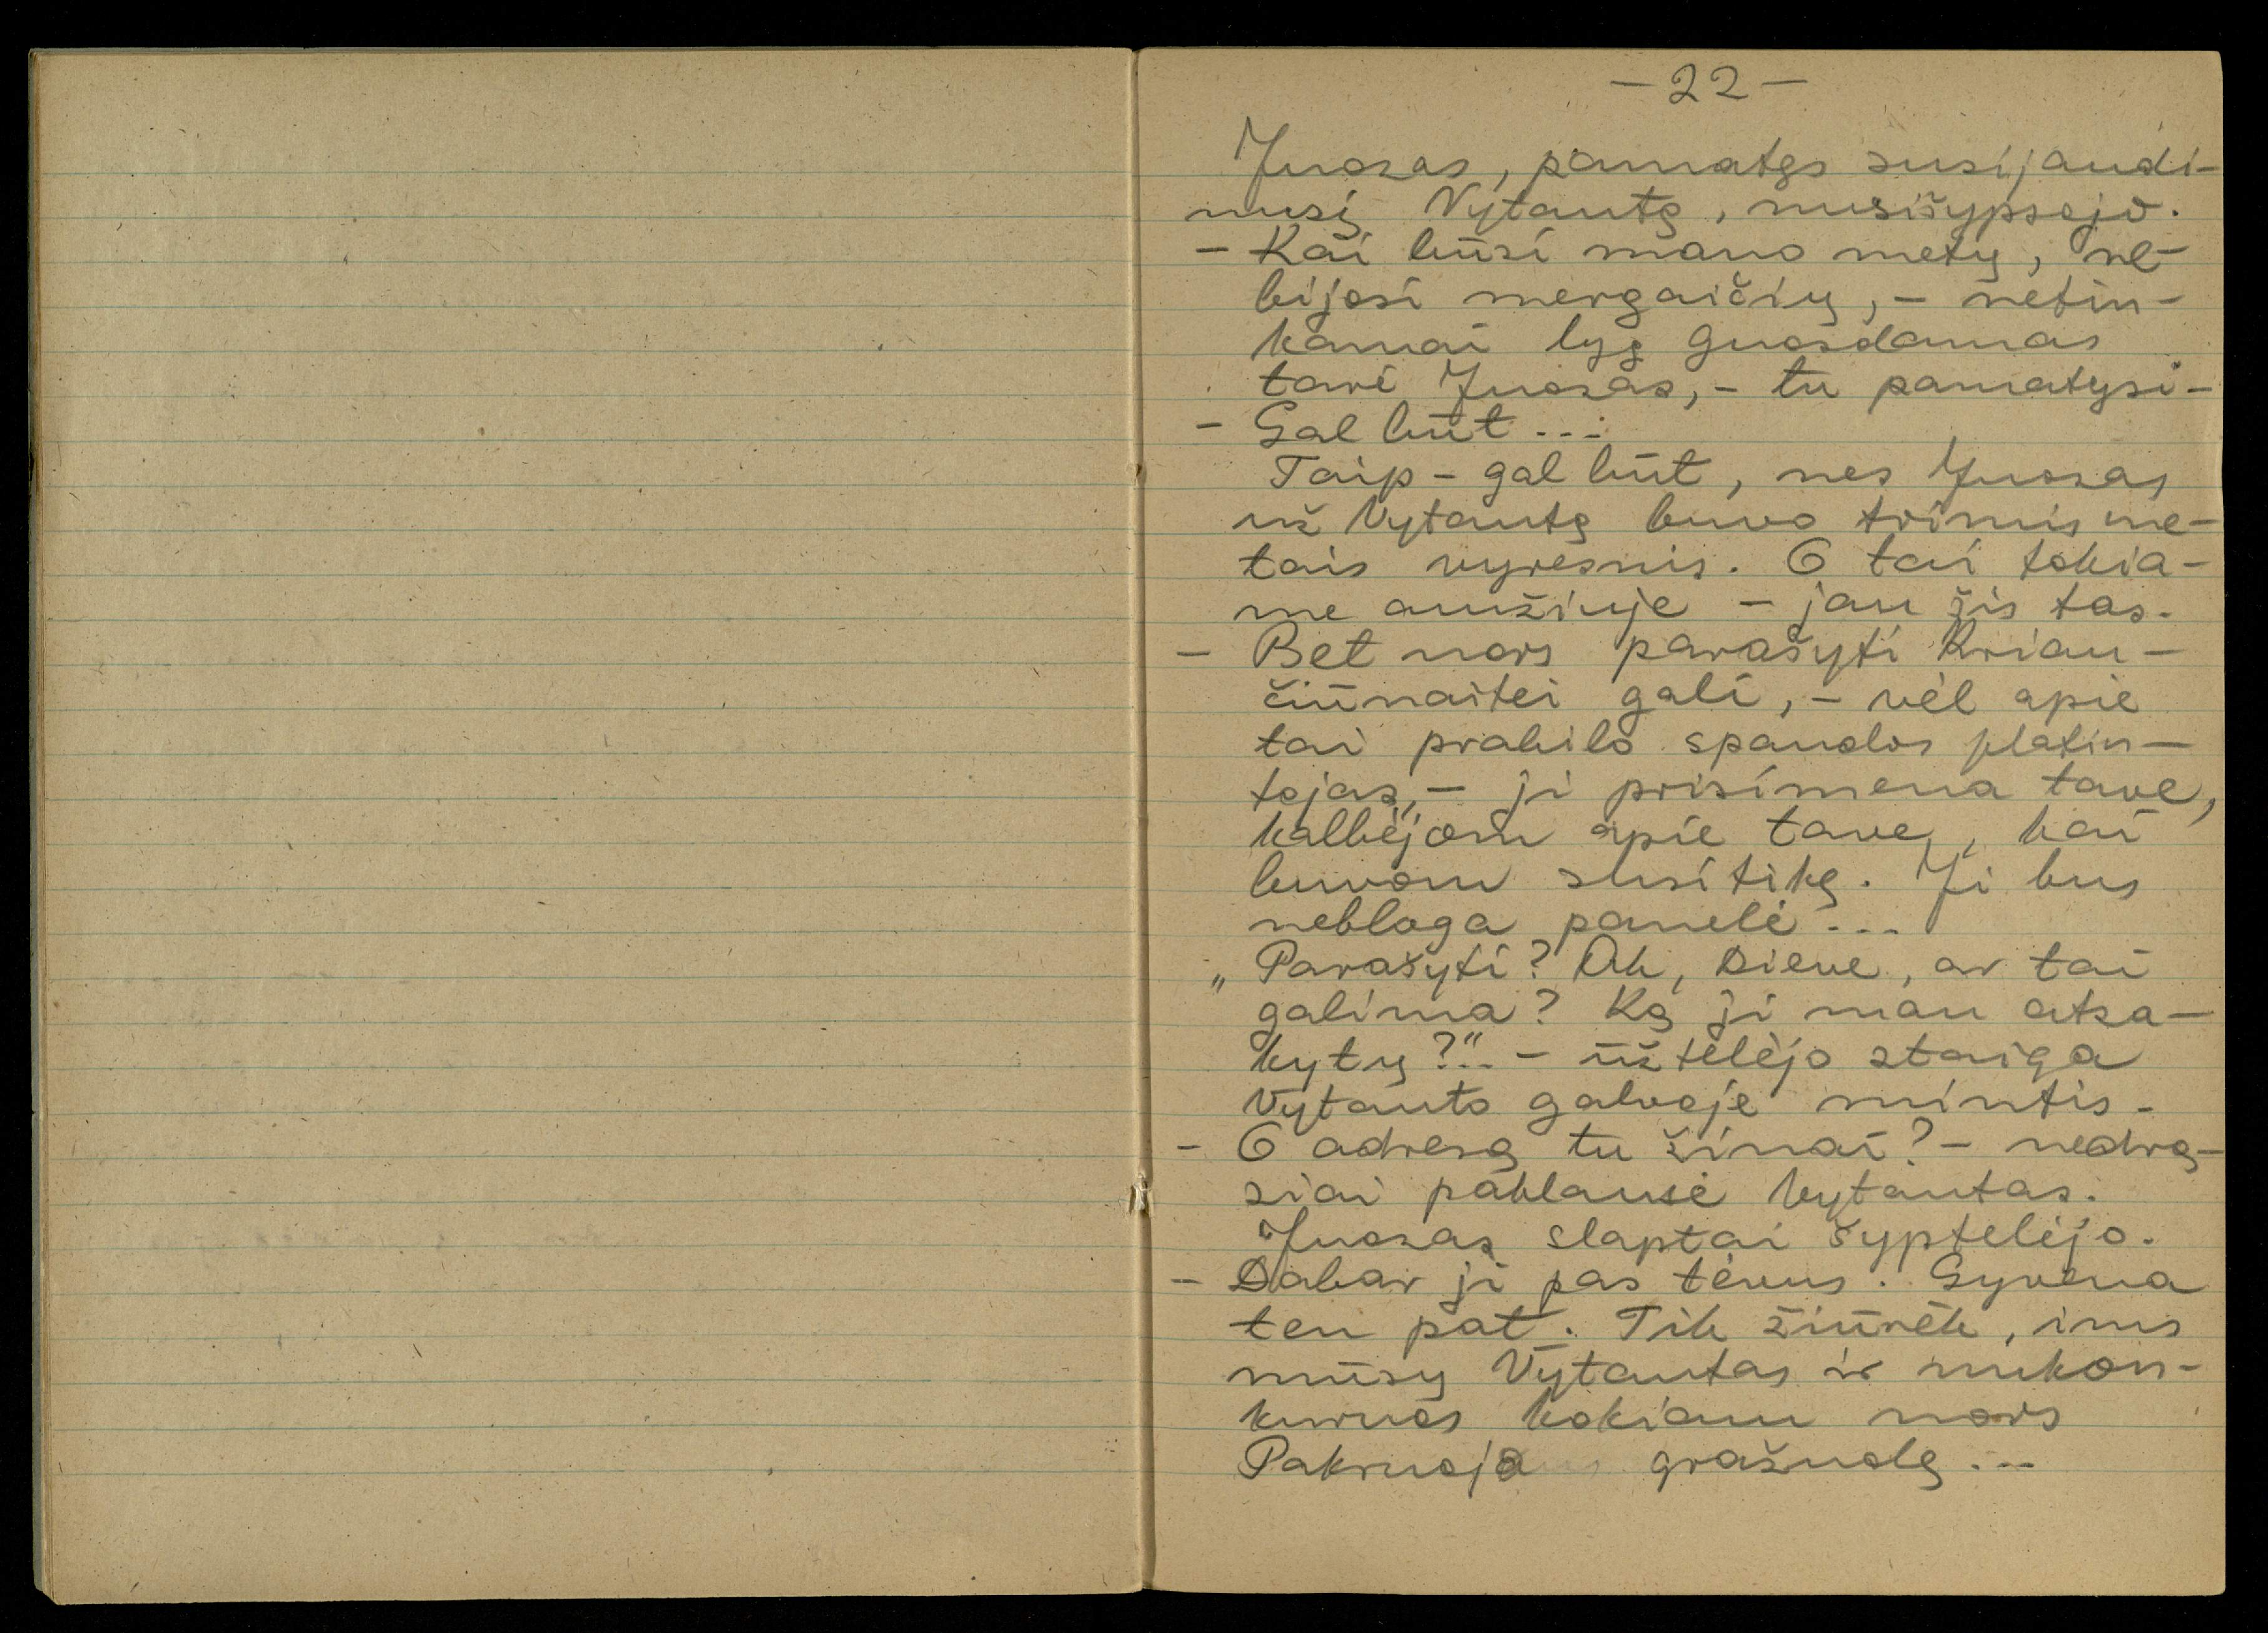 — 22 —
Juozas, pamatęs susijaudi-
nusį Vytautą, nusišypsojo.
- Kai būsi mano metų, ne-
bijosi mergaičių, - netin-
kamai lyg guosdamas
tarė Juozas, - tu pamatysi -
- Gal būt...
Taip - gal būt, nes Juozas
už Vytautą buvo trimis me-
tais vyresnis. O tai tokia-
me amžiuje - jau šis tas.
- Bet nors parašyti Kriau-
čiūnaitei gali, - vėl apie
tai prabilo spaudos platin-
tojas, - ji prisimena tave,
kalbėjom apie tave, kai
buvom susitikę. Ji bus
nebloga panelė...
„Parašyti? Ak, Dieve, ar tai
galima? Ką ji man atsa-
kytų?"... - ūžtelėjo staiga
Vytauto galvoje mintis.
- O adresą tu žinai? - nedrą-
siai paklausė Vytautas.
Juozas slaptai šyptelėjo.
- Dabar ji pas tėvus. Gyvena
ten pat. Tik žiūrėk, ims
mūsų Vytautas ir nukon-
kuruos kokiam nors
Pakruojo gražuolę...